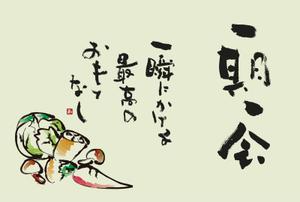 一期一会
一瞬にかける
最高の
おもて
なし